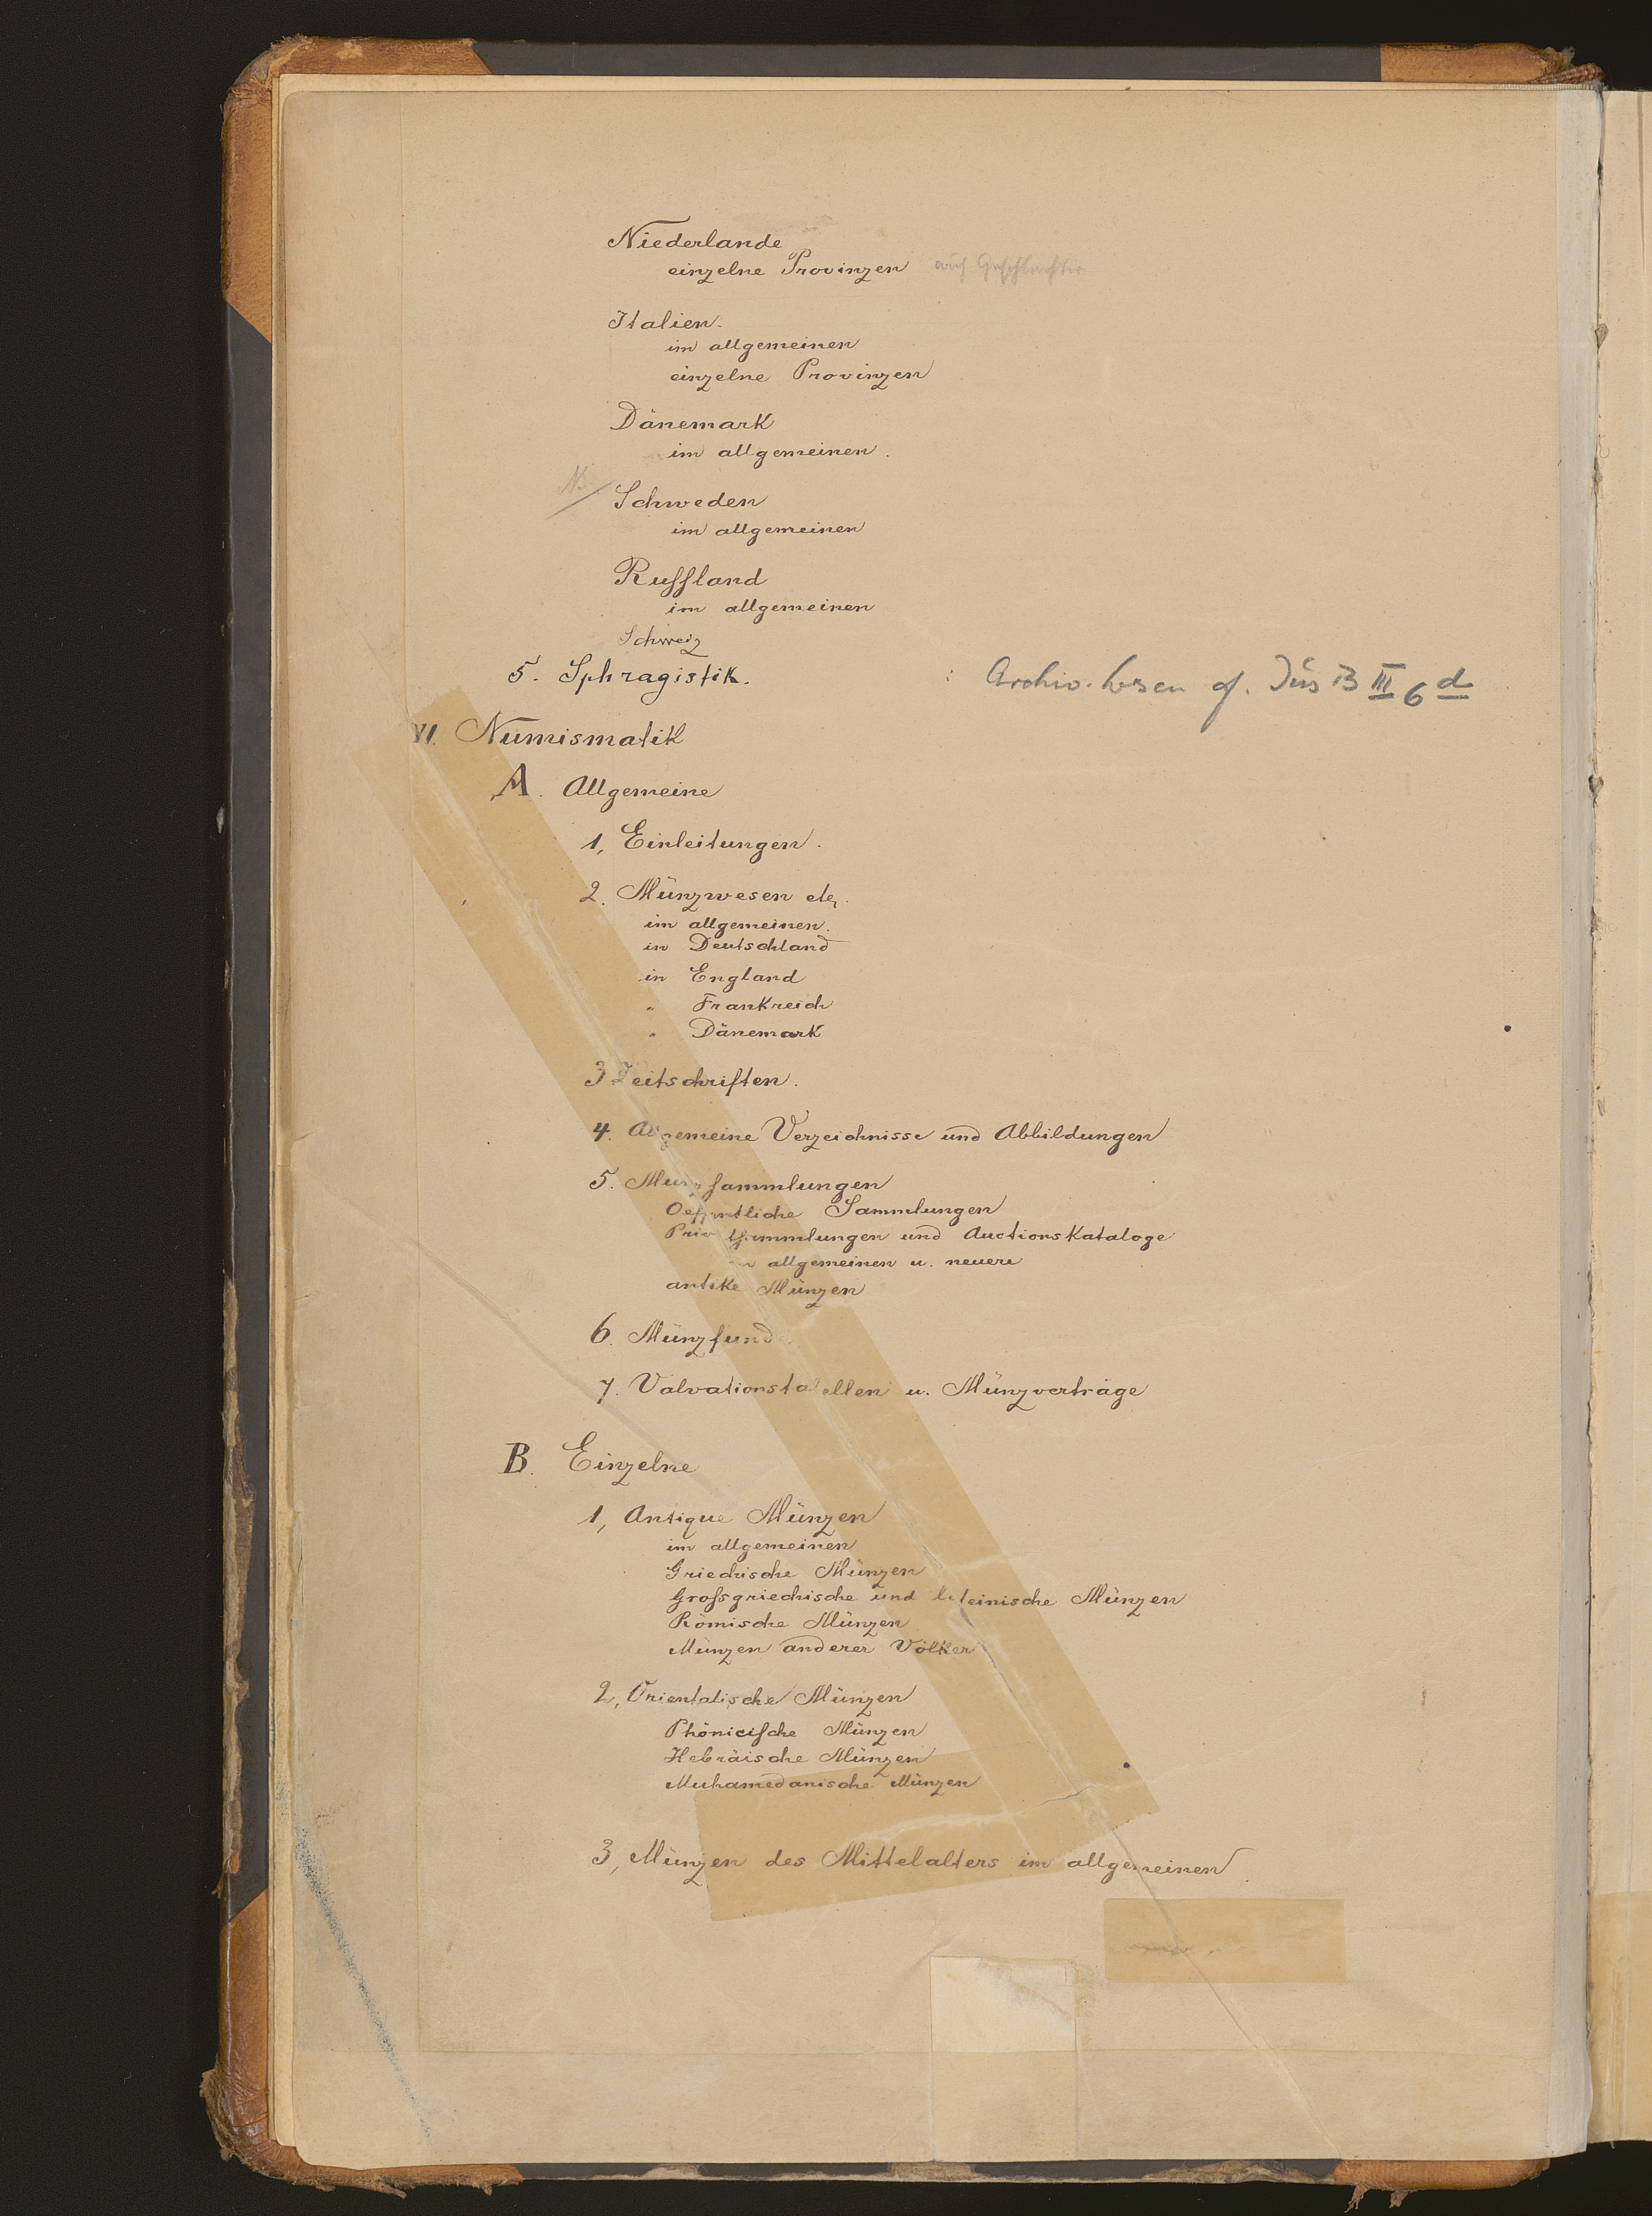 Niederlande
einzelne Provinzen auch Geschlechter
Italien.
im allgemeinen
einzelne Provinzen
Dänemark
im allgemeinen.
Schweden
im allgemeinen
Russland
im allgemeinen
Schweiz
5. Sphragistik. : Archiv. wesen cf. Jus B III 6 d
VI. Numismatik
A. Allgemeine
1, Einleitungen.
2. Münzwesen etc.
im allgemeinen.
in Deutschland
in England
" Frankreich
" Dänemark
3 Zeitschriften.
4. Allgemeine Verzeichnisse und Abbildungen
5. Münzsammlungen
Oeffentliche Sammlungen
Privatsammlungen und Auctionskataloge
im allgemeinen u. neuere
antike Münzen
6. Münzfunde
7. Valvationstabellen u. Münzverträge
B. Einzelne
1, Antique Münzen
im allgemeinen
Griechische Münzen
Grossgriechische und lateinische Münzen
Römische Münzen
Münzen anderer Völker
2, Orientalische Münzen
Phönicische Münzen
Hebräische Münzen
Muhamedanische Münzen
3, Münzen des Mittelalters im allgemeinen.